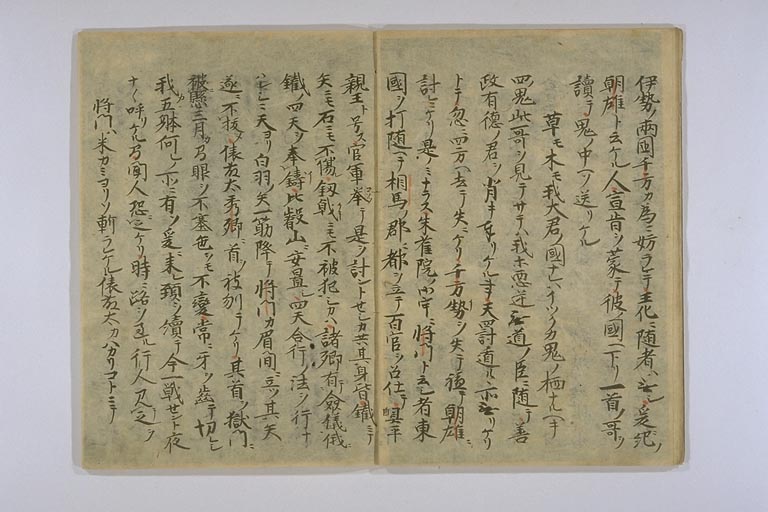 伊勢ノ兩國千方カ為ニ妨ラレテ王化ニ随者ハ无シ爰ニ紀ノ
朝雄ト云ケル人宣旨ヲ蒙テ彼ノ國ニ下リ一首ノ哥ヲ
讀テ鬼ノ中ヘソ送リケル
草モ木モ我大君ノ國ナレハイツクカ鬼ノ栖ナルヘキ
四鬼此哥ヲ見テサテハ我等悪逆无道ノ臣ニ随テ善
政有徳ノ君ヲ背キ奉リケル事天罸遁ルヽ所无リケリ
トテ忽ニ四方ヘ去テ失ニケリ千方勢ヲ失テ頓テ朝雄ニ
討レニケリ是ノミナラス朱雀院ノ御宇ニ將門ト云シ者東
國ヲ打随ヘテ相馬ノ郡ニ都ヲ立テ百官ヲ召仕テ平
親王ト号ス官軍挙テ是ヲ討ントセシカ共其身皆鐵ニテ
矢ニモ石ニモ不傷釼戟ニモ不被犯シカハ諸卿有僉儀俄ニ
鐵ノ四天ヲ奉鋳比叡山ニ安置シ四天合行ノ法ヲ行ナ
ハレシニ天ヨリ白羽ノ矢一筋降テ將門カ眉間ニ立ツ其矢
遂ニ不抜俵藤太秀郷ニ首ヲ被刎テケリ其首ヲ獄門ニ
被懸三月マテ眼ヲ不塞色ヲモ不變常ニ牙ヲ歯テ切レシ
我五躰何レノ所ニ有ソ爰ニ来レ頚ヲ續テ今一戦セント夜ナ
ナ呼リケル間聞人恐之ケリ時ニ路ヲ過ル行人是ヲ
將門ハ米カミヨリソ斬ラレケル俵藤太カハカリコトニテ